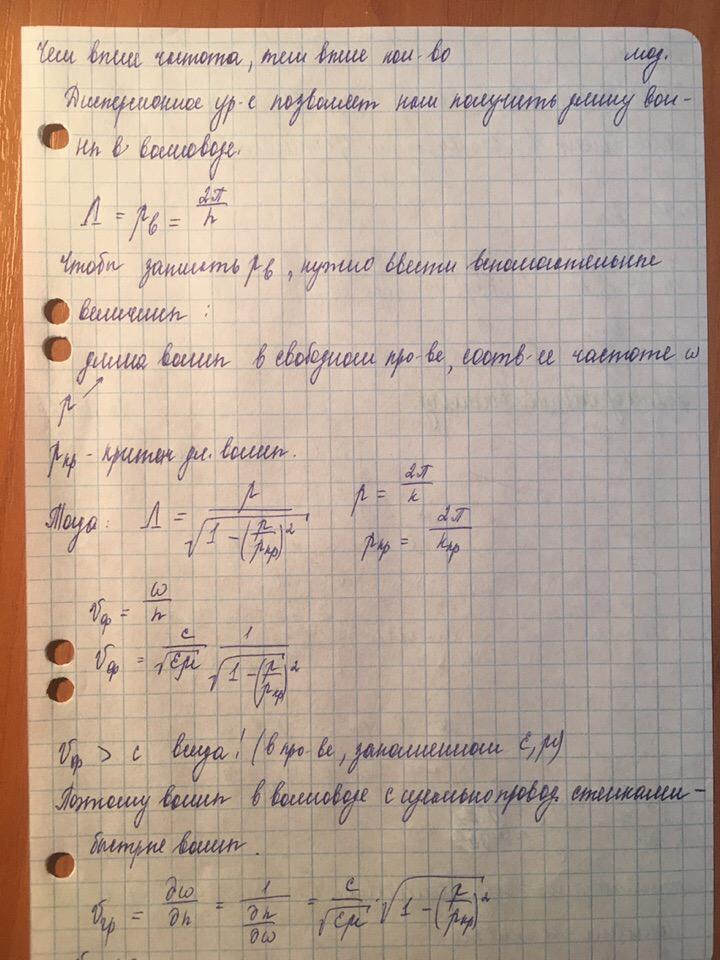 Чем выше частота, тем выше кол-во мод.
Дисперсионное ур-е позволяет нам получить длину вол-
ны в волноводе.
Λ = λ_в = 2π/h
Чтобы записать λ_в, нужно ввести вспомогательные
величины:
длина волны в свободном про-ве, соотв-ее частоте ω
λ
λ_кр - критич дл. волны.
Тогда: Λ = λ/√(1-(λ/λ_кр)²) λ = 2π/k
λ_кр = 2π/k_кр
v_ф = ω/h
v_ф = c/√(εμ) 1/√(1-(λ/λ_кр)²)
v_ф > c всегда! (в про-ве, заполненном ε, μ)
Поэтому волны в волноводе с идеальнопровод. стенками -
быстрые волны.
v_гр = ∂ω/∂h = 1/(∂h/∂ω) = c/√(εμ) · √(1-(λ/λ_кр)²)